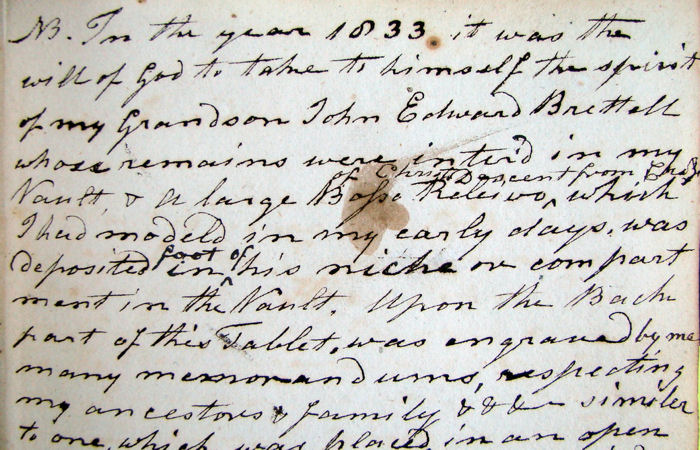 NB. In the year 1833 it was the
will of God to take to himself the spirit
of my Grandson John Edward Brettell
whose remains were inter'd in my
of Christ's Descent from
Vault, & a large Bosso Releivo, which
I had modeld in my early days, was
foot of
deposited in his niche or compart
ment in the Vault. Upon the Back
part of this Tablet, was engraved by me
many memorandums, respecting
my ancestors & family &&& similer
to one, which was placed in an open